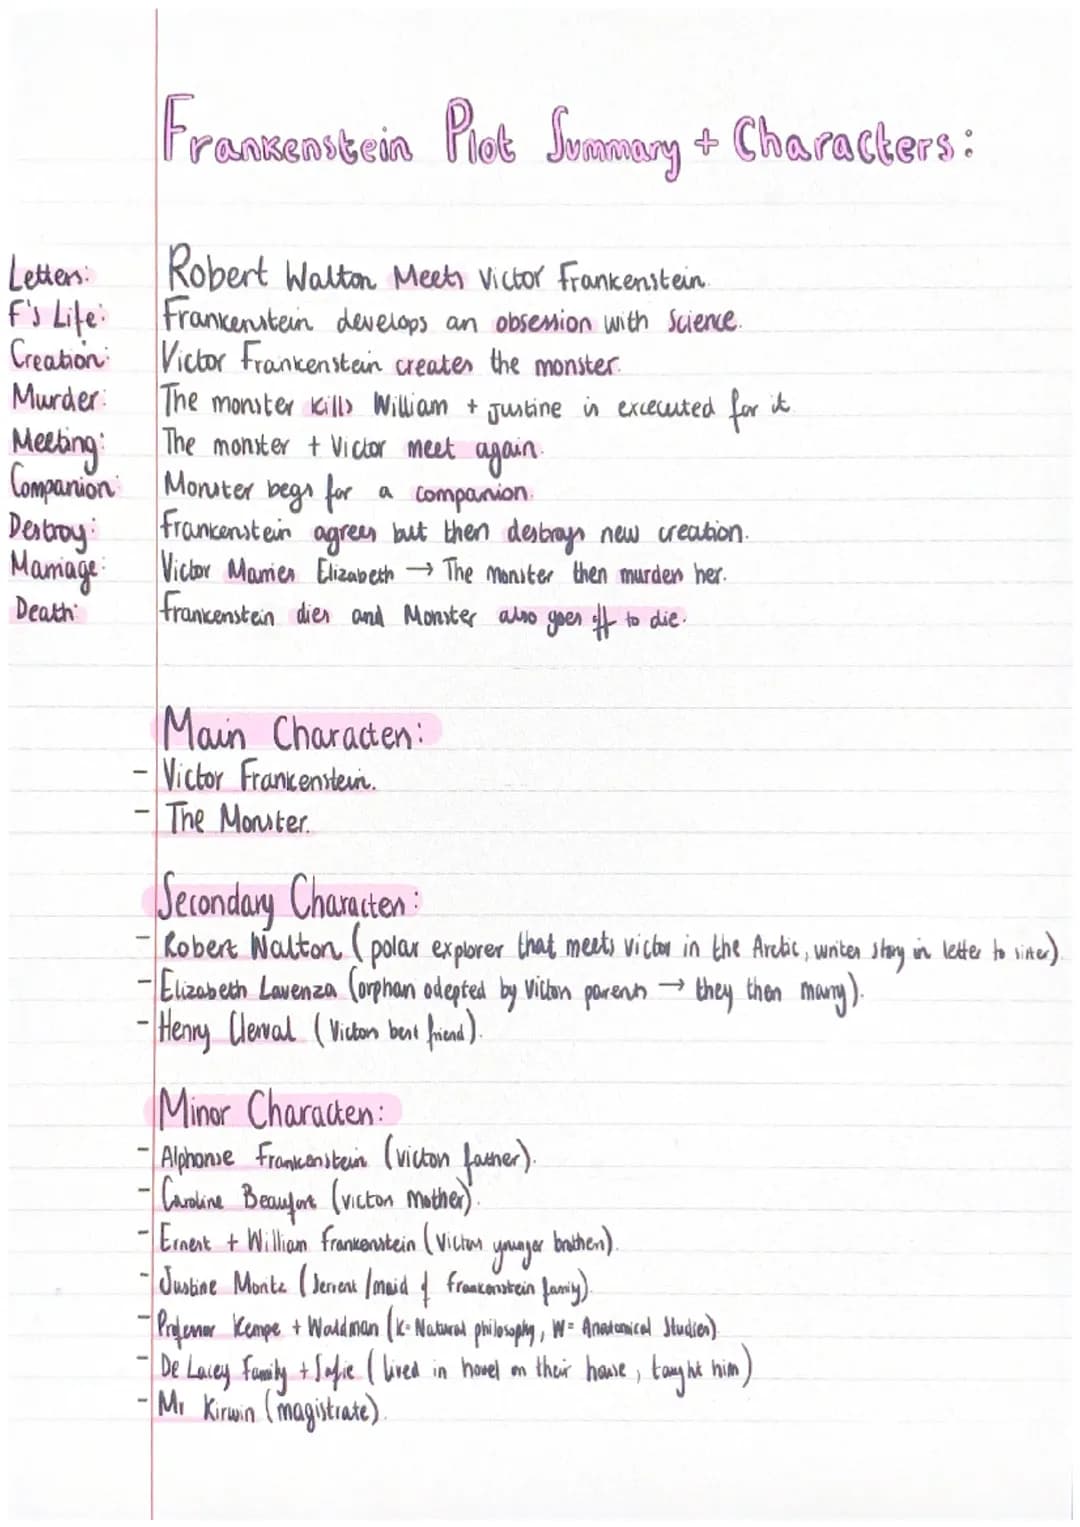 Frankenstein Plot Summary + Characters:
Letters: Robert Walton Meets Victor Frankenstein.
F's Life: Frankenstein develops an obsession with Science.
Creation: Victor Frankenstein creates the monster.
Murder: The monster kills William + Justine is excecuted for it
Meeting: The monster + Victor meet again.
Companion: Monster begs for a companion.
Destroy: Frankenstein agrees but then destroys new creation.
Marriage: Victor Marries Elizabeth → The monster then murders her.
Death: Frankenstein dies and Monster also goes off to die.
Main Characters:
- Victor Frankenstein.
- The Monster.
Secondary Characters:
- Robert Walton (polar explorer that meets victor in the Arctic, writes story in letter to sister).
- Elizabeth Lavenza (orphan adepted by Victors parents → they then marry).
- Henry Clerval (Victors best friend).
Minor Characters:
- Alphonse Frankenstein (victors father).
- Caroline Beaufort (victors mother).
- Ernest + William Frankenstein (Victors younger brothers).
- Justine Moritz (Servent /maid of frankenstein family).
- Professor Kempe + Waldman (K= Natural philosophy, W= Anatomical Studies).
- De Lacey Family + Safie (lived in hovel on their house, taught him)
- Mr Kirwin (magistrate).